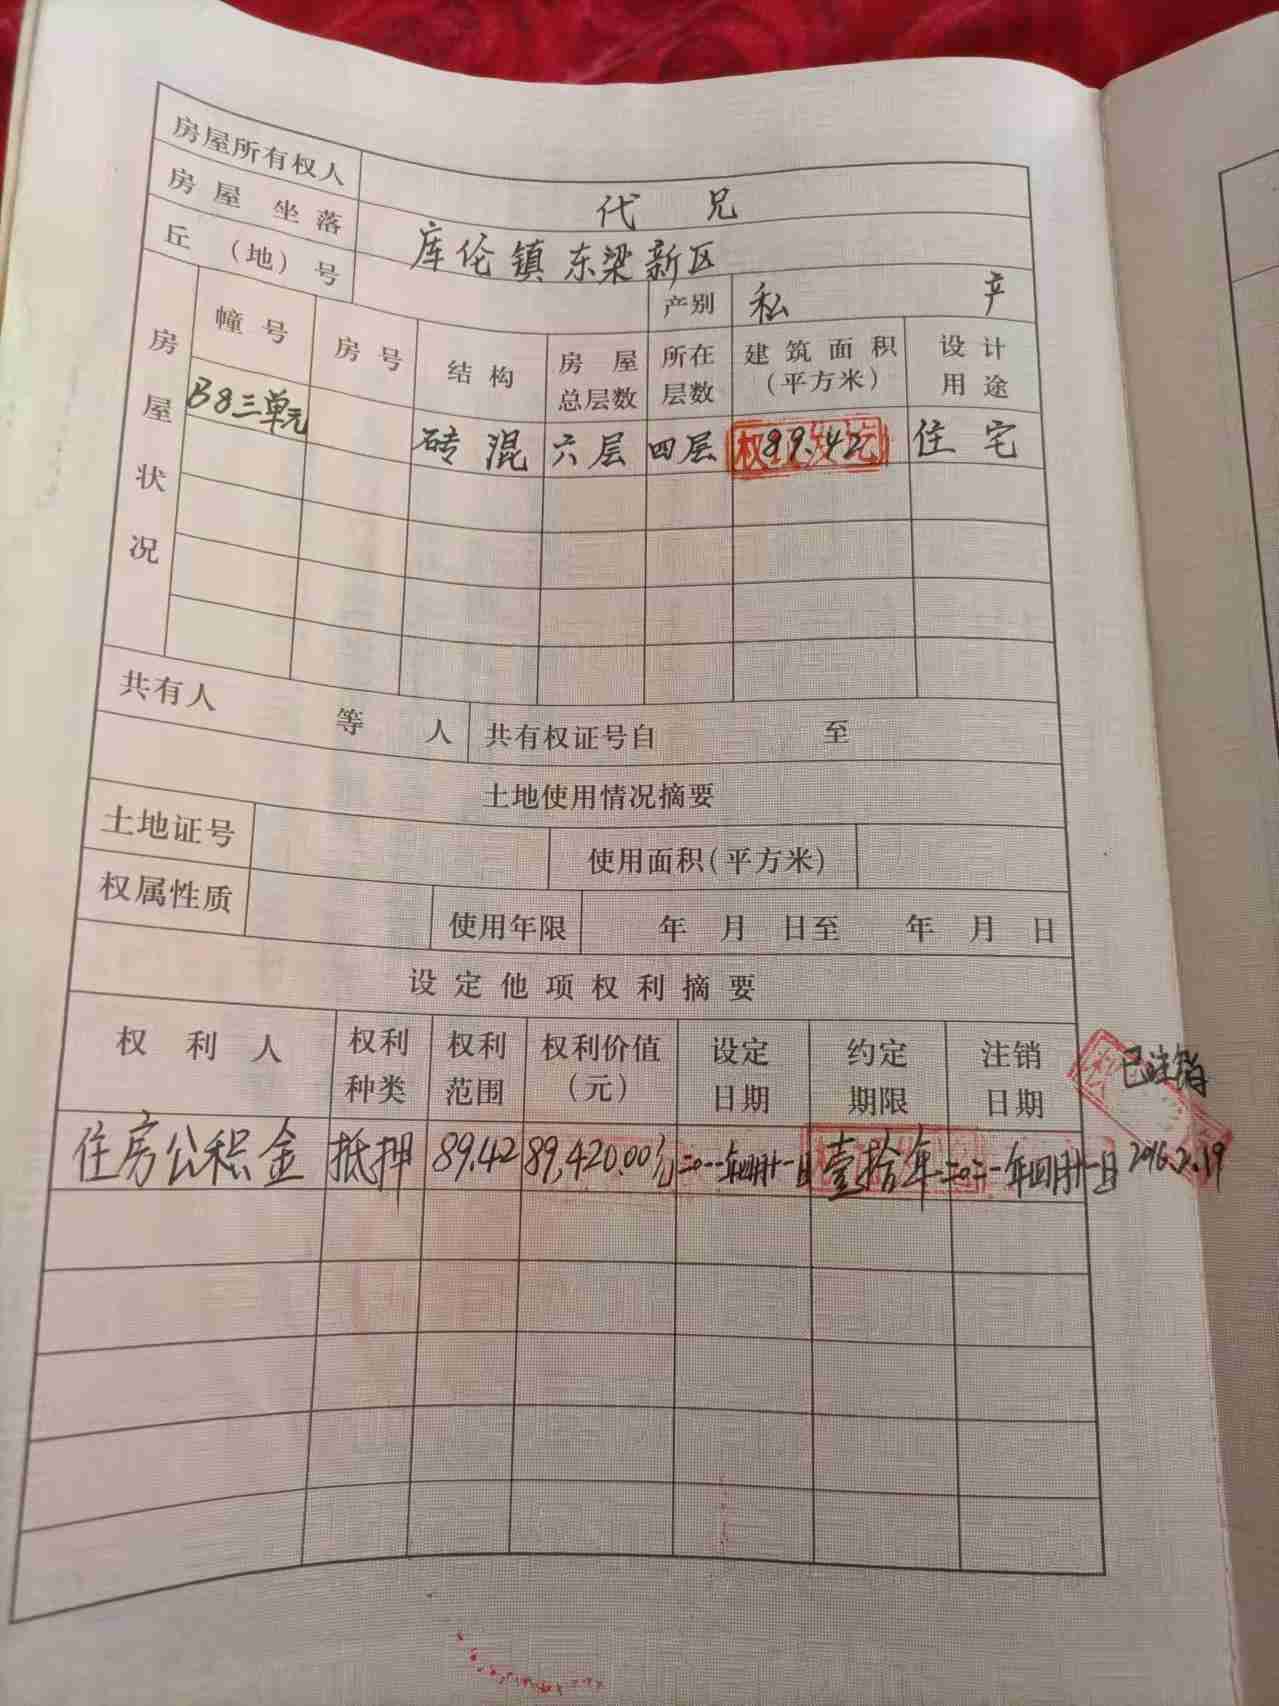 房屋所有权人 代 兄
房屋坐落 库伦镇东梁新区
丘（地）号 产别 私 产
房屋状况 幢号 房号 结构 房屋总层数 所在层数 建筑面积（平方米） 设计用途
B8三单元 砖混 六层 四层 89.42 住宅
共有人 等 人 共有权证号自 至
土地使用情况摘要
土地证号 使用面积(平方米)
权属性质 使用年限 年 月 日至 年 月 日
设定他项权利摘要
权利人 权利种类 权利范围 权利价值（元） 设定日期 约定期限 注销日期
已注销
住房公积金 抵押 89.42 89,420.00元 二〇一一年四月十一日 壹拾年 二〇二一年四月十一日 2016.2.19